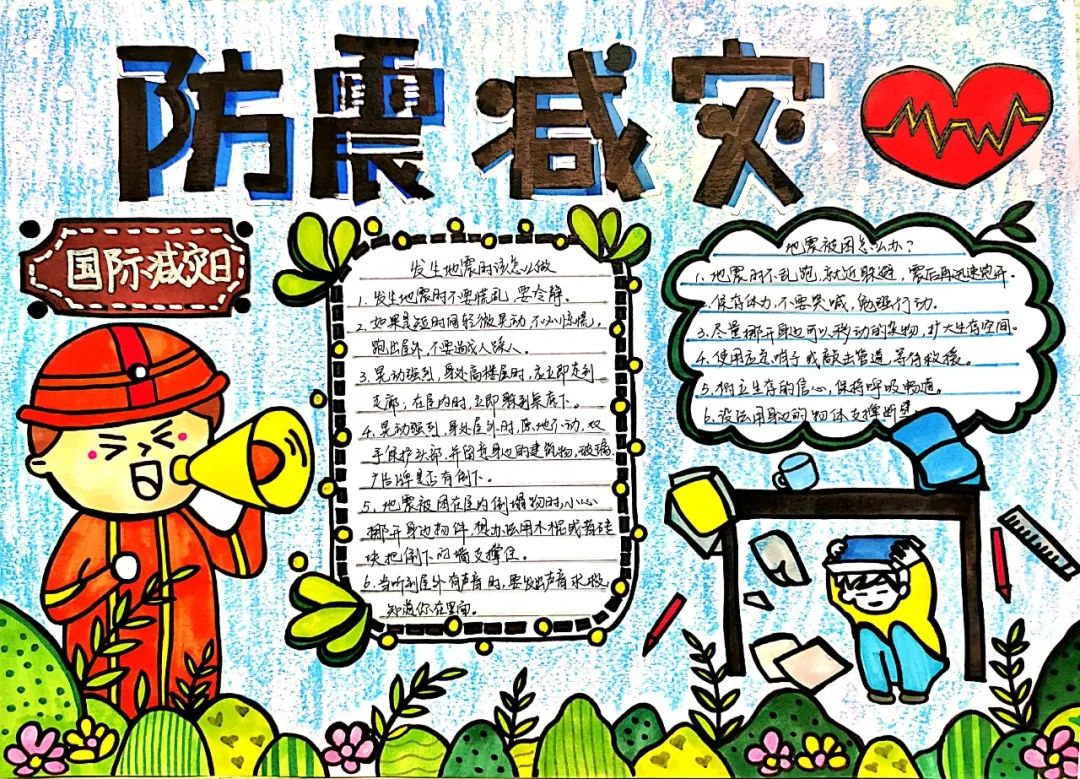 防震减灾
国际减灾日
发生地震时该怎么做
1. 发生地震时不要慌乱,要冷静。
2. 如果是短时间轻微晃动,不必惊慌,
跑出屋外,不要造成人踩人。
3. 晃动强烈,身处高楼层时,应立即走到
走廊;在屋内时,立即躲到桌底下。
4. 晃动强烈,身处屋外时,原地不动,双
手保护头部,并留意身边的建筑物,玻璃、
广告牌是否有倒下。
5. 地震被困在屋内倒塌物时,小心
挪开身边物件,想办法用木棍或者硅
块把倒下的墙支撑住。
6. 当听到屋外有声音时,要发出声音求救
知道你在里面。
地震被困怎么办?
1. 地震时不乱跑,就近躲避,震后再迅速跑开。
2. 保存体力,不要哭喊,勉强行动。
3. 尽量挪开身边可以移动的杂物,扩大生存空间。
4. 使用应急哨子或敲击管道,等待救援。
5. 树立生存的信心,保持呼吸畅通。
6. 设法用身边的物体支撑断